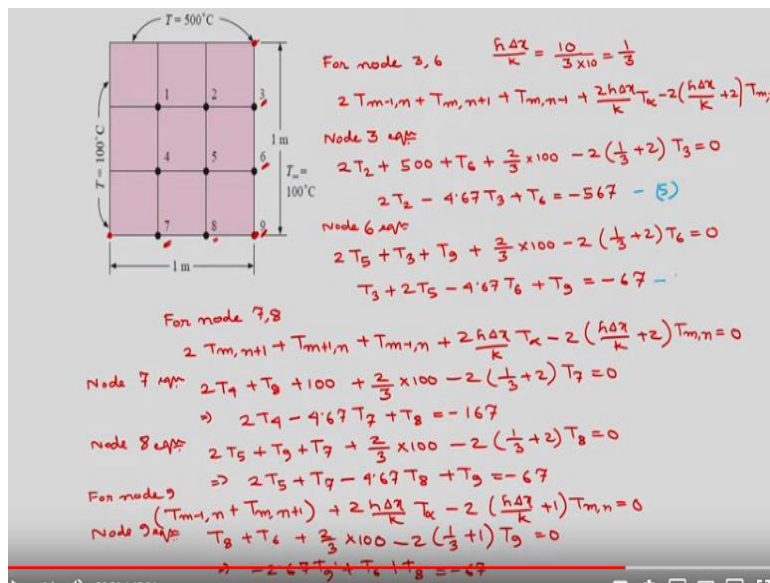 T = 500°C
T = 100°C
1 2 3
4 5 6
7 8 9
1 m
T∞ = 100°C
1 m
For node 3, 6 hΔx/k = 10/(3×10) = 1/3
2 Tm-1,n + Tm,n+1 + Tm,n-1 + 2hΔx/k T∝ - 2(hΔx/k + 2) Tm,
Node 3 eqn
2T2 + 500 + T6 + 2/3 × 100 - 2(1/3 + 2) T3 = 0
2T2 - 4.67 T3 + T6 = -567 - (5)
Node 6 eqn
2T5 + T3 + T9 + 2/3 × 100 - 2(1/3 + 2) T6 = 0
T3 + 2T5 - 4.67 T6 + T9 = -67 -
For node 7,8
2 Tm,n+1 + Tm+1,n + Tm-1,n + 2hΔx/k T∝ - 2(hΔx/k + 2) Tm,n = 0
Node 7 eqn 2T4 + T8 + 100 + 2/3 × 100 - 2(1/3 + 2) T7 = 0
⇒ 2T4 - 4.67 T7 + T8 = -167
Node 8 eqn 2T5 + T9 + T7 + 2/3 × 100 - 2(1/3 + 2) T8 = 0
⇒ 2T5 + T7 - 4.67 T8 + T9 = -67
For node 9
(Tm-1,n + Tm,n+1) + 2hΔx/k T∝ - 2(hΔx/k + 1) Tm,n = 0
Node 9 eqn T8 + T6 + 2/3 × 100 - 2(1/3 + 1) T9 = 0
⇒ -2.67 T9 + T6 + T8 = -67